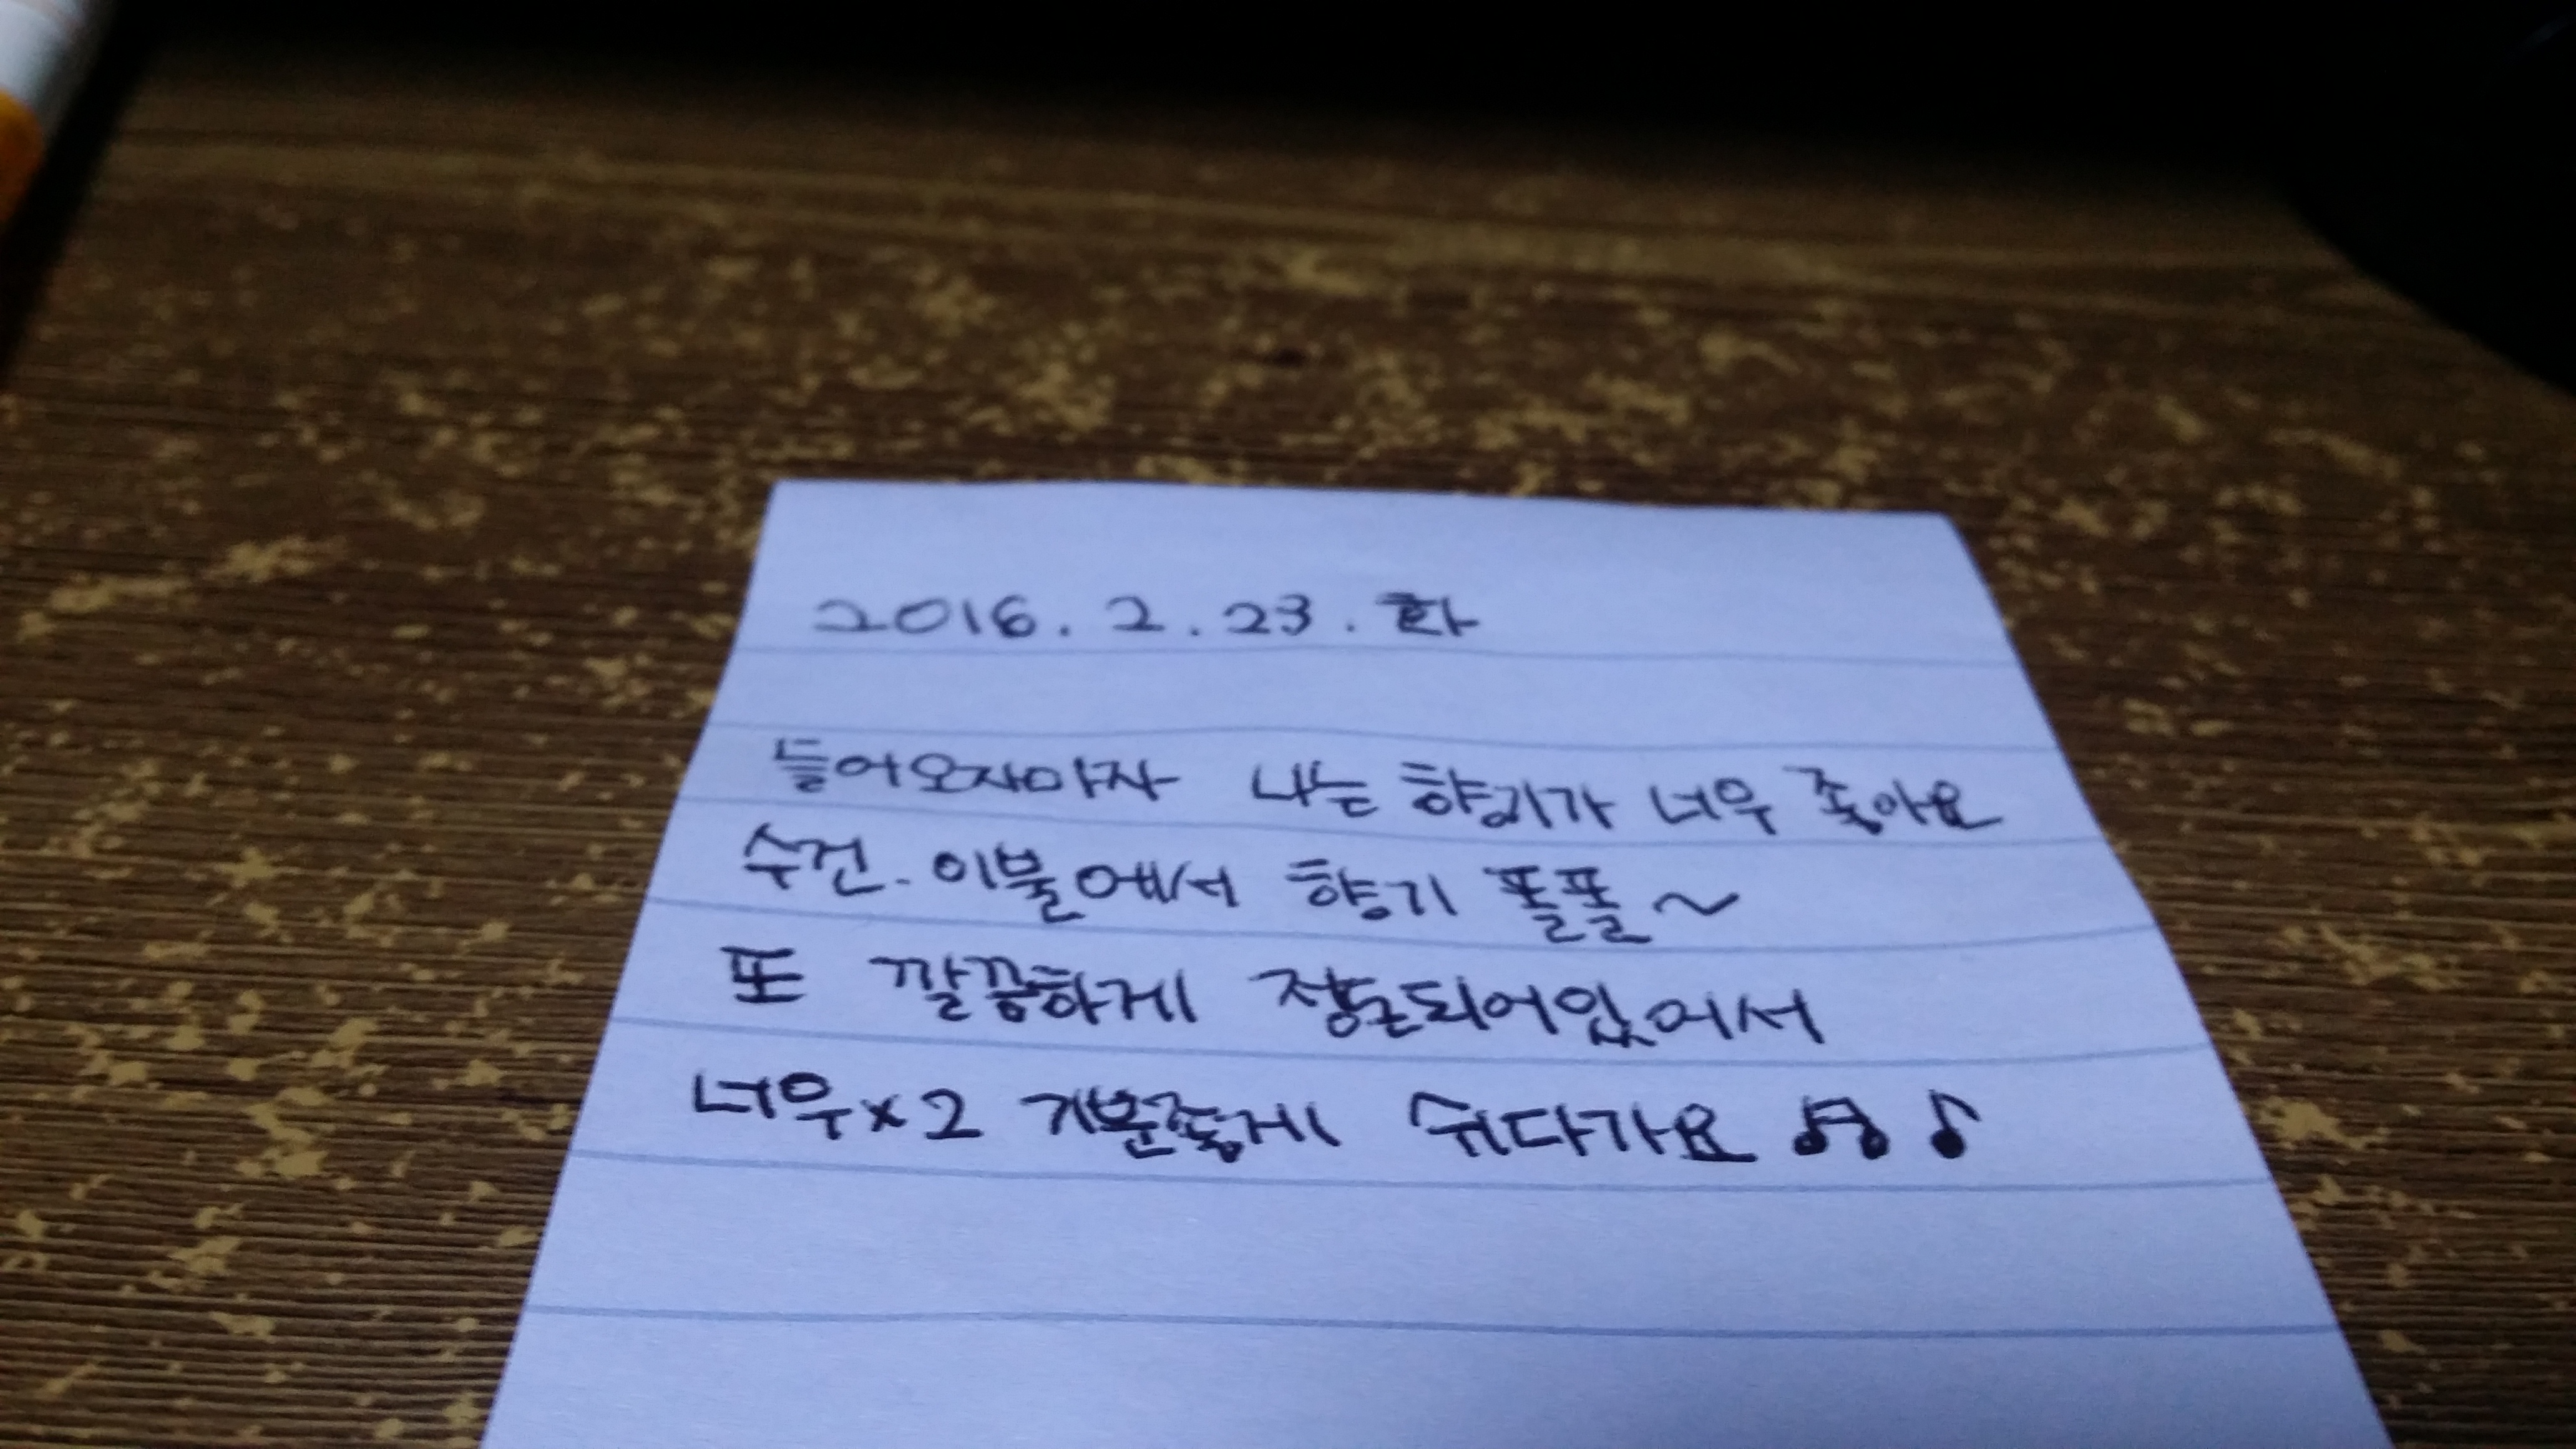 2016. 2. 23. 화
들어오자마자 나는 향기가 너무 좋아요
수건. 이불에서 향기 폴폴~
또 깔끔하게 정돈되어있어서
너무x2 기분좋게 쉬다가요 ♬ ♪